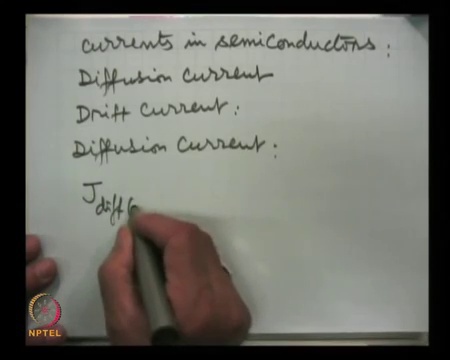 currents in semiconductors:
Diffusion Current
Drift Current:
Diffusion Current:
J diff
NPTEL